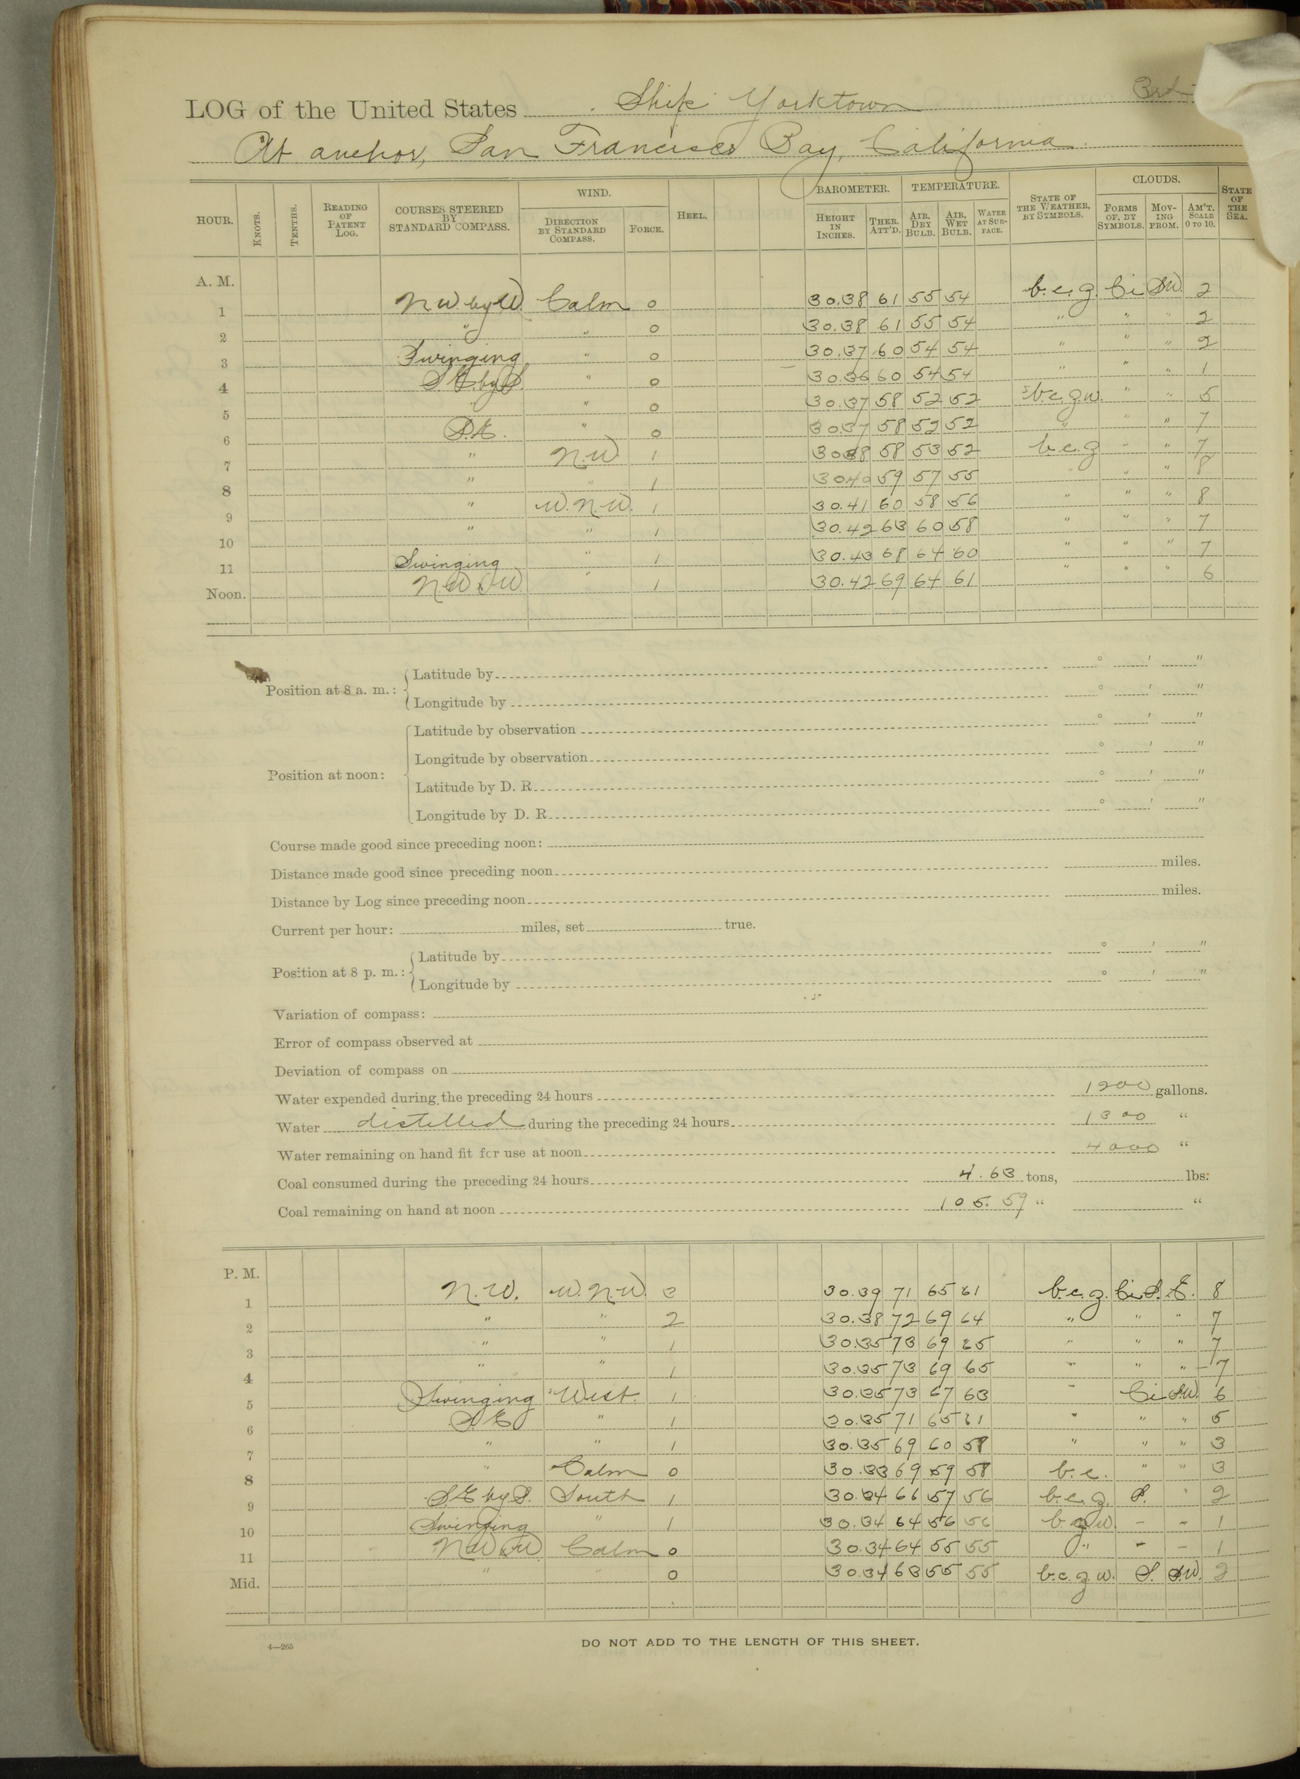 LOG of the United States Ship Yorktown 3rd
At anchor, San Francisco Bay, California.
HOUR. KNOTS. TENTHS. READING OF PATENT LOG. COURSES STEERED BY STANDARD COMPASS. WIND. DIRECTION BY STANDARD COMPASS. FORCE. HEEL. BAROMETER. HEIGHT IN INCHES. THER. ATT'D. TEMPERATURE. AIR, DRY BULB. AIR, WET BULB. WATER AT SURFACE. STATE OF THE WEATHER, BY SYMBOLS. CLOUDS. FORMS OF, BY SYMBOLS. MOVING FROM. AM'T. SCALE 0 TO 10. STATE OF THE SEA.
A. M.
1 NW by W Calm 0 30.38 61 55 54 b.c.g. Ci SW. 2
2 " " 0 30.38 61 55 54 " " " 2
3 Swinging " 0 30.37 60 54 54 " " " 2
4 SE by S " 0 30.36 60 54 54 " " " 1
5 " " 0 30.37 58 52 52 b.c.g.w. " " 5
6 S.E. " 0 30.37 58 52 52 " " " 7
7 " N.W 1 30.38 58 53 52 b.c.g - " 7
8 " " 1 30.40 59 57 55 " " " 8
9 " W.N.W. 1 30.41 60 58 56 " " " 8
10 " " 1 30.42 63 60 58 " " " 7
11 Swinging " 1 30.43 68 64 60 " " " 7
Noon. NW " 1 30.42 69 64 61 " " " 6
Position at 8 a. m.: Latitude by ° ' "
Longitude by ° ' "
Position at noon: Latitude by observation ° ' "
Longitude by observation ° ' "
Latitude by D. R. ° ' "
Longitude by D. R. ° ' "
Course made good since preceding noon:
Distance made good since preceding noon miles.
Distance by Log since preceding noon miles.
Current per hour: miles, set true.
Position at 8 p. m.: Latitude by ° ' "
Longitude by ° ' "
Variation of compass:
Error of compass observed at
Deviation of compass on
Water expended during the preceding 24 hours 1200 gallons.
Water distilled during the preceding 24 hours 1300 "
Water remaining on hand fit for use at noon 4000 "
Coal consumed during the preceding 24 hours 4.63 tons, lbs:
Coal remaining on hand at noon 105.59 " "
P. M.
1 N.W. W.N.W. 2 30.39 71 65 61 b.c.g. Ci.S. E. 8
2 " " 2 30.38 72 69 64 " " " 7
3 " " 1 30.35 73 69 65 " " " 7
4 " " 1 30.35 73 69 65 " " " 7
5 Swinging West. 1 30.35 73 67 63 " Ci SW. 6
6 S.E. " 1 30.35 71 65 61 " " " 5
7 " " 1 30.35 69 60 58 " " " 3
8 " Calm 0 30.33 69 59 58 b.c. " " 3
9 SE by S. South 1 30.34 66 57 56 b.c.g. S. " 2
10 Swinging " 1 30.34 64 56 56 b.g.w. - - 1
11 NW Calm 0 30.34 64 55 55 " - - 1
Mid. " " 0 30.34 63 55 55 b.c.g.w. S. SW. 2
4—265 DO NOT ADD TO THE LENGTH OF THIS SHEET.